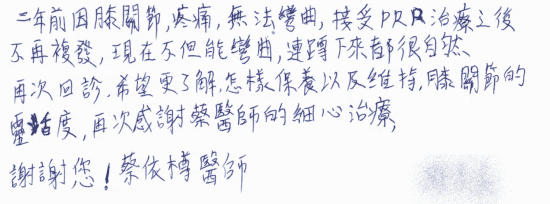 二年前因膝關節,疼痛,無法彎曲,接受PRP治療之後
不再複發,現在不但能彎曲,連蹲下來都很自然、
再次回診,希望更了解,怎樣保養以及維持,膝關節的
靈活度,再次感謝蔡醫師的細心治療,
謝謝您!蔡依樽醫師